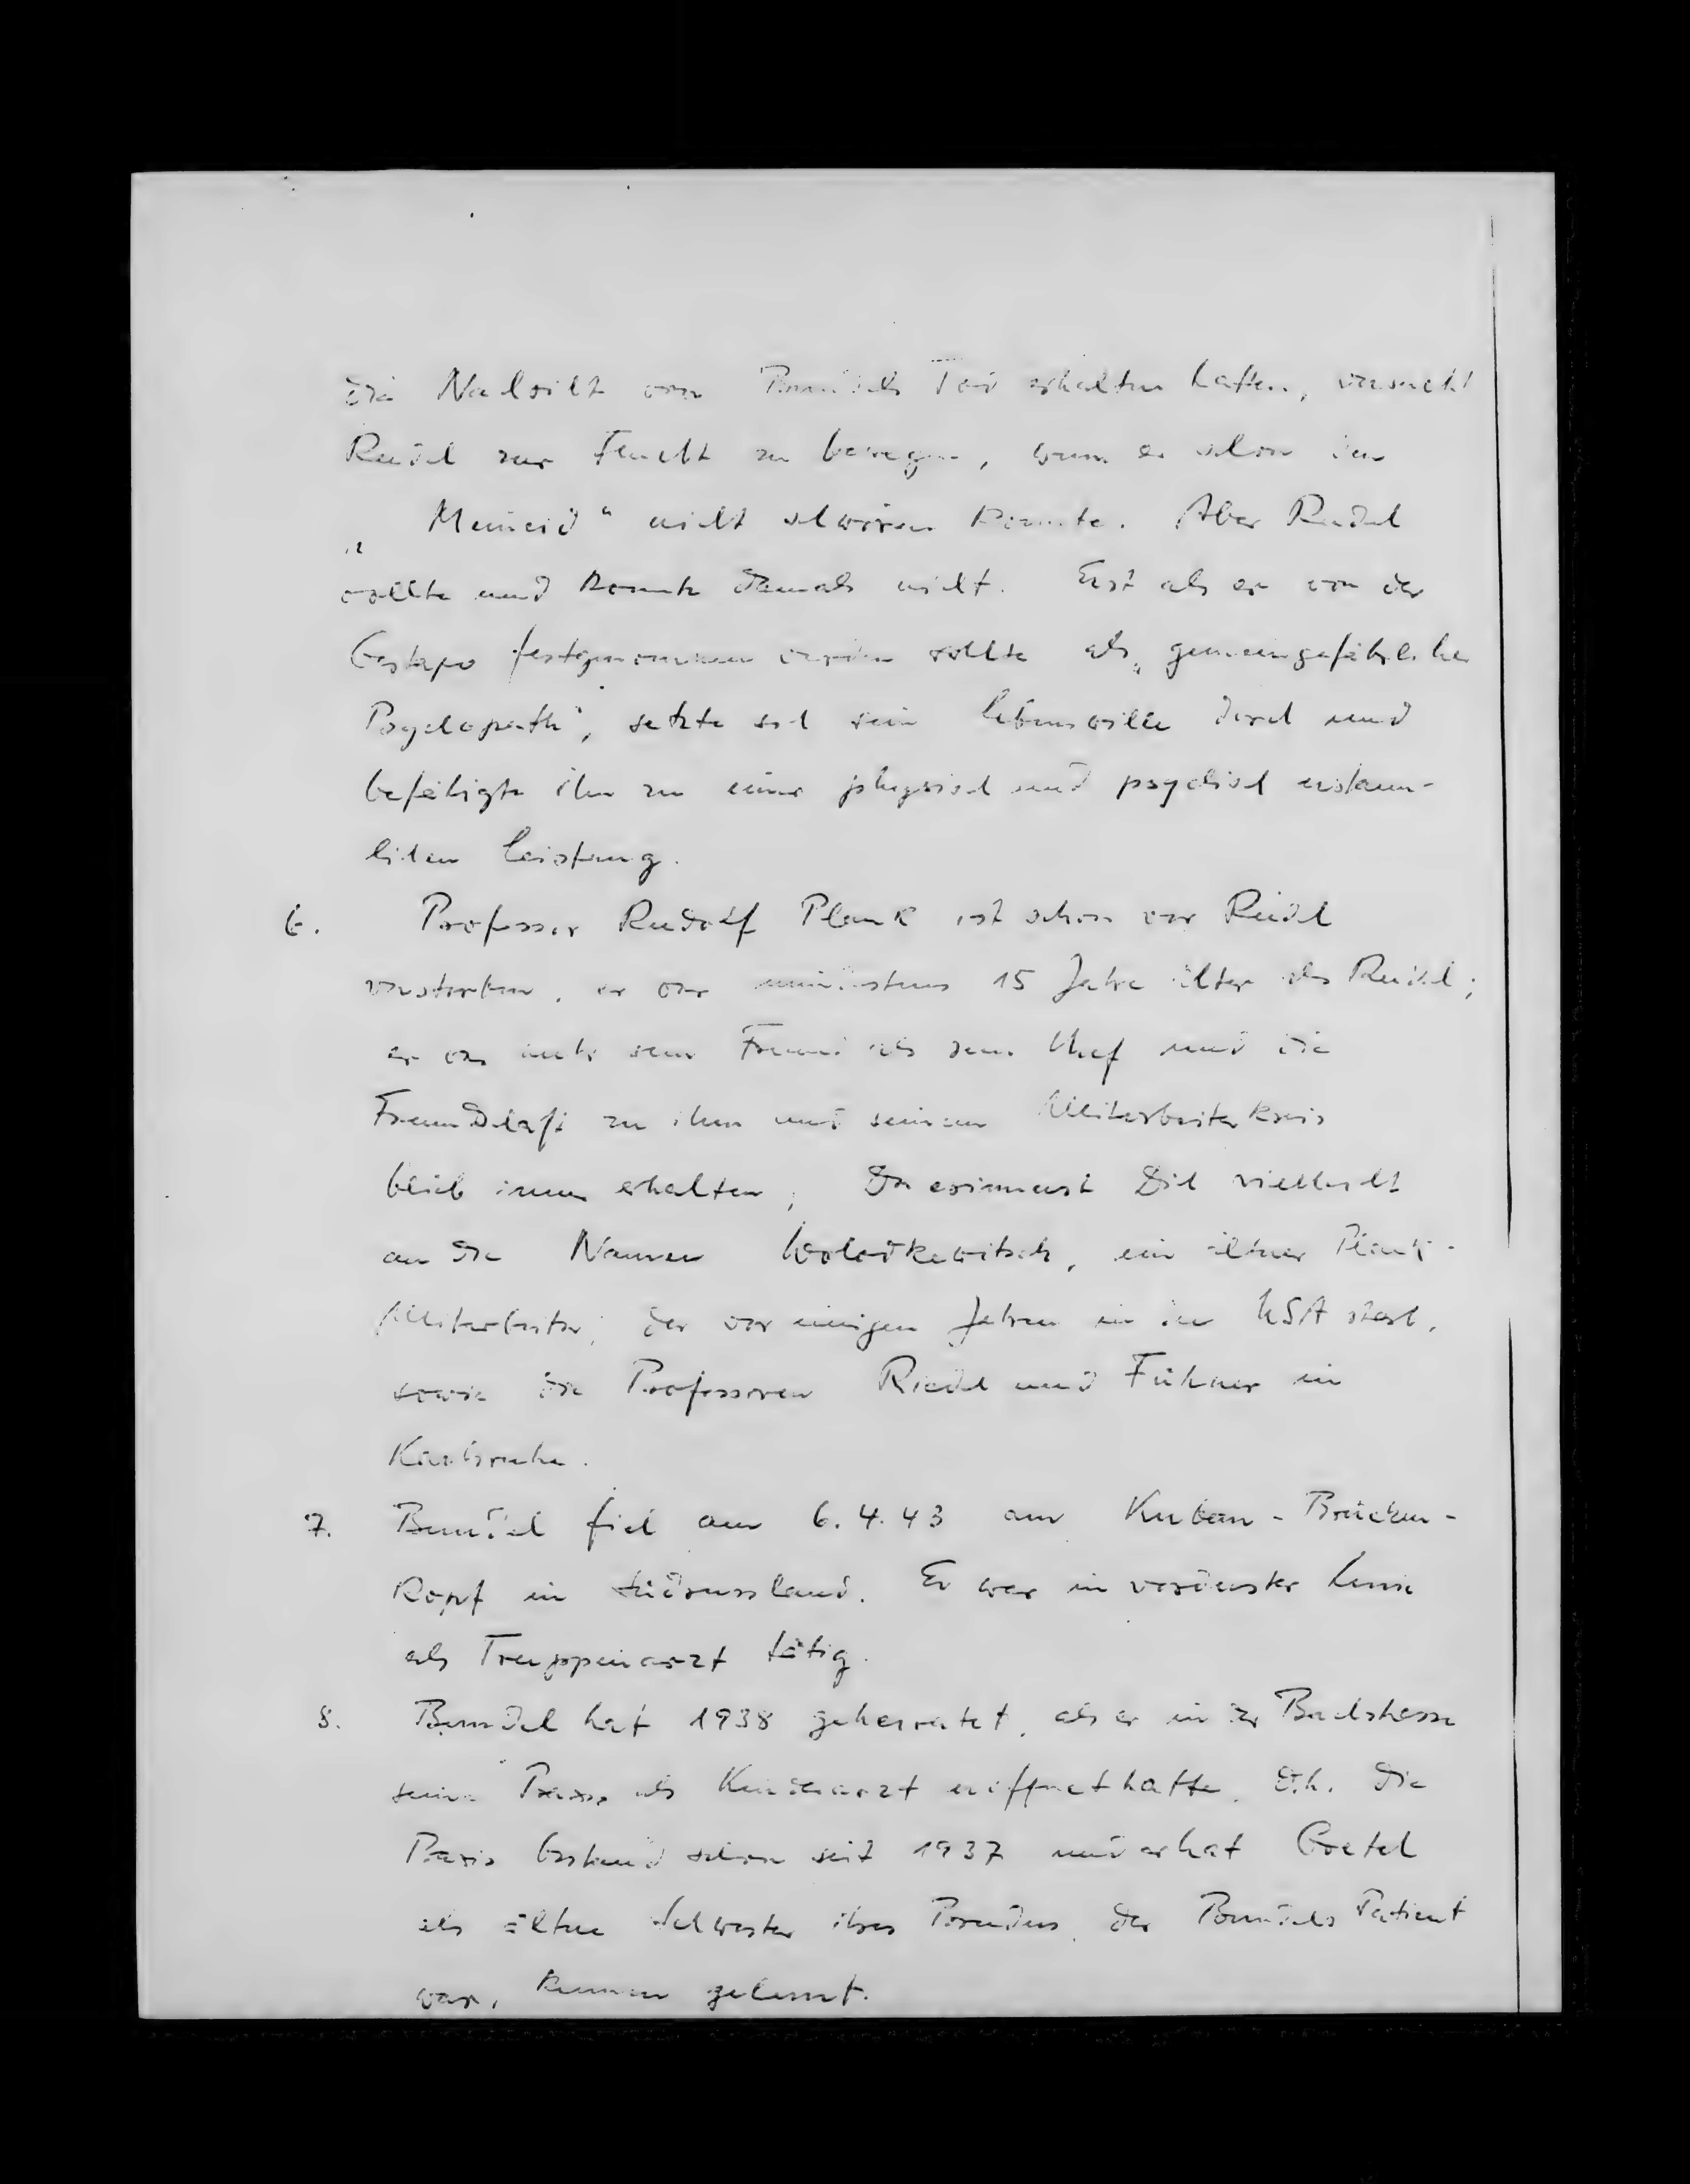 die Nachricht von Bundels Tod erhalten hatten, versucht
Reidel zur Flucht zu bewegen, wenn er schon den
„Meineid“ nicht schwören konnte. Aber Reidel
wollte und konnte damals nicht. Erst als er von der
Gestapo festgenommen werden sollte als „gemeingefährlicher
Psychopath“, setzte sich sein Lebenswille durch und
befähigte ihn zu einer physisch und psychisch erstaun-
lichen Leistung.
6. Professor Rudolf Plank ist schon vor Reidel
verstorben, er war mindestens 15 Jahre älter als Reidel;
er war mehr sein Freund als sein Chef und die
Freundschaft zu ihm und seinem Mitarbeiterkreis
blieb immer erhalten; Du erinnerst Dich vielleicht
an die Namen Woloikewitsch, ein älterer Plank-
Mitarbeiter, der vor einigen Jahren in den USA starb,
sowie die Professoren Riedel und Führer in
Karlsruhe.
7. Bundel fiel am 6.4.43 am Kuban-Brücken-
kopf in Südrussland. Er war in vorderster Linie
als Truppenarzt tätig.
8. Bundel hat 1938 geheiratet, als er in der Bachstrasse
seine Praxis als Kinderarzt eröffnet hatte. D.h. die
Praxis bestand schon seit 1937 und er hat Gretel
als ältere Schwester ihres Bruders, der Bundels Patient
war, kennen gelernt.